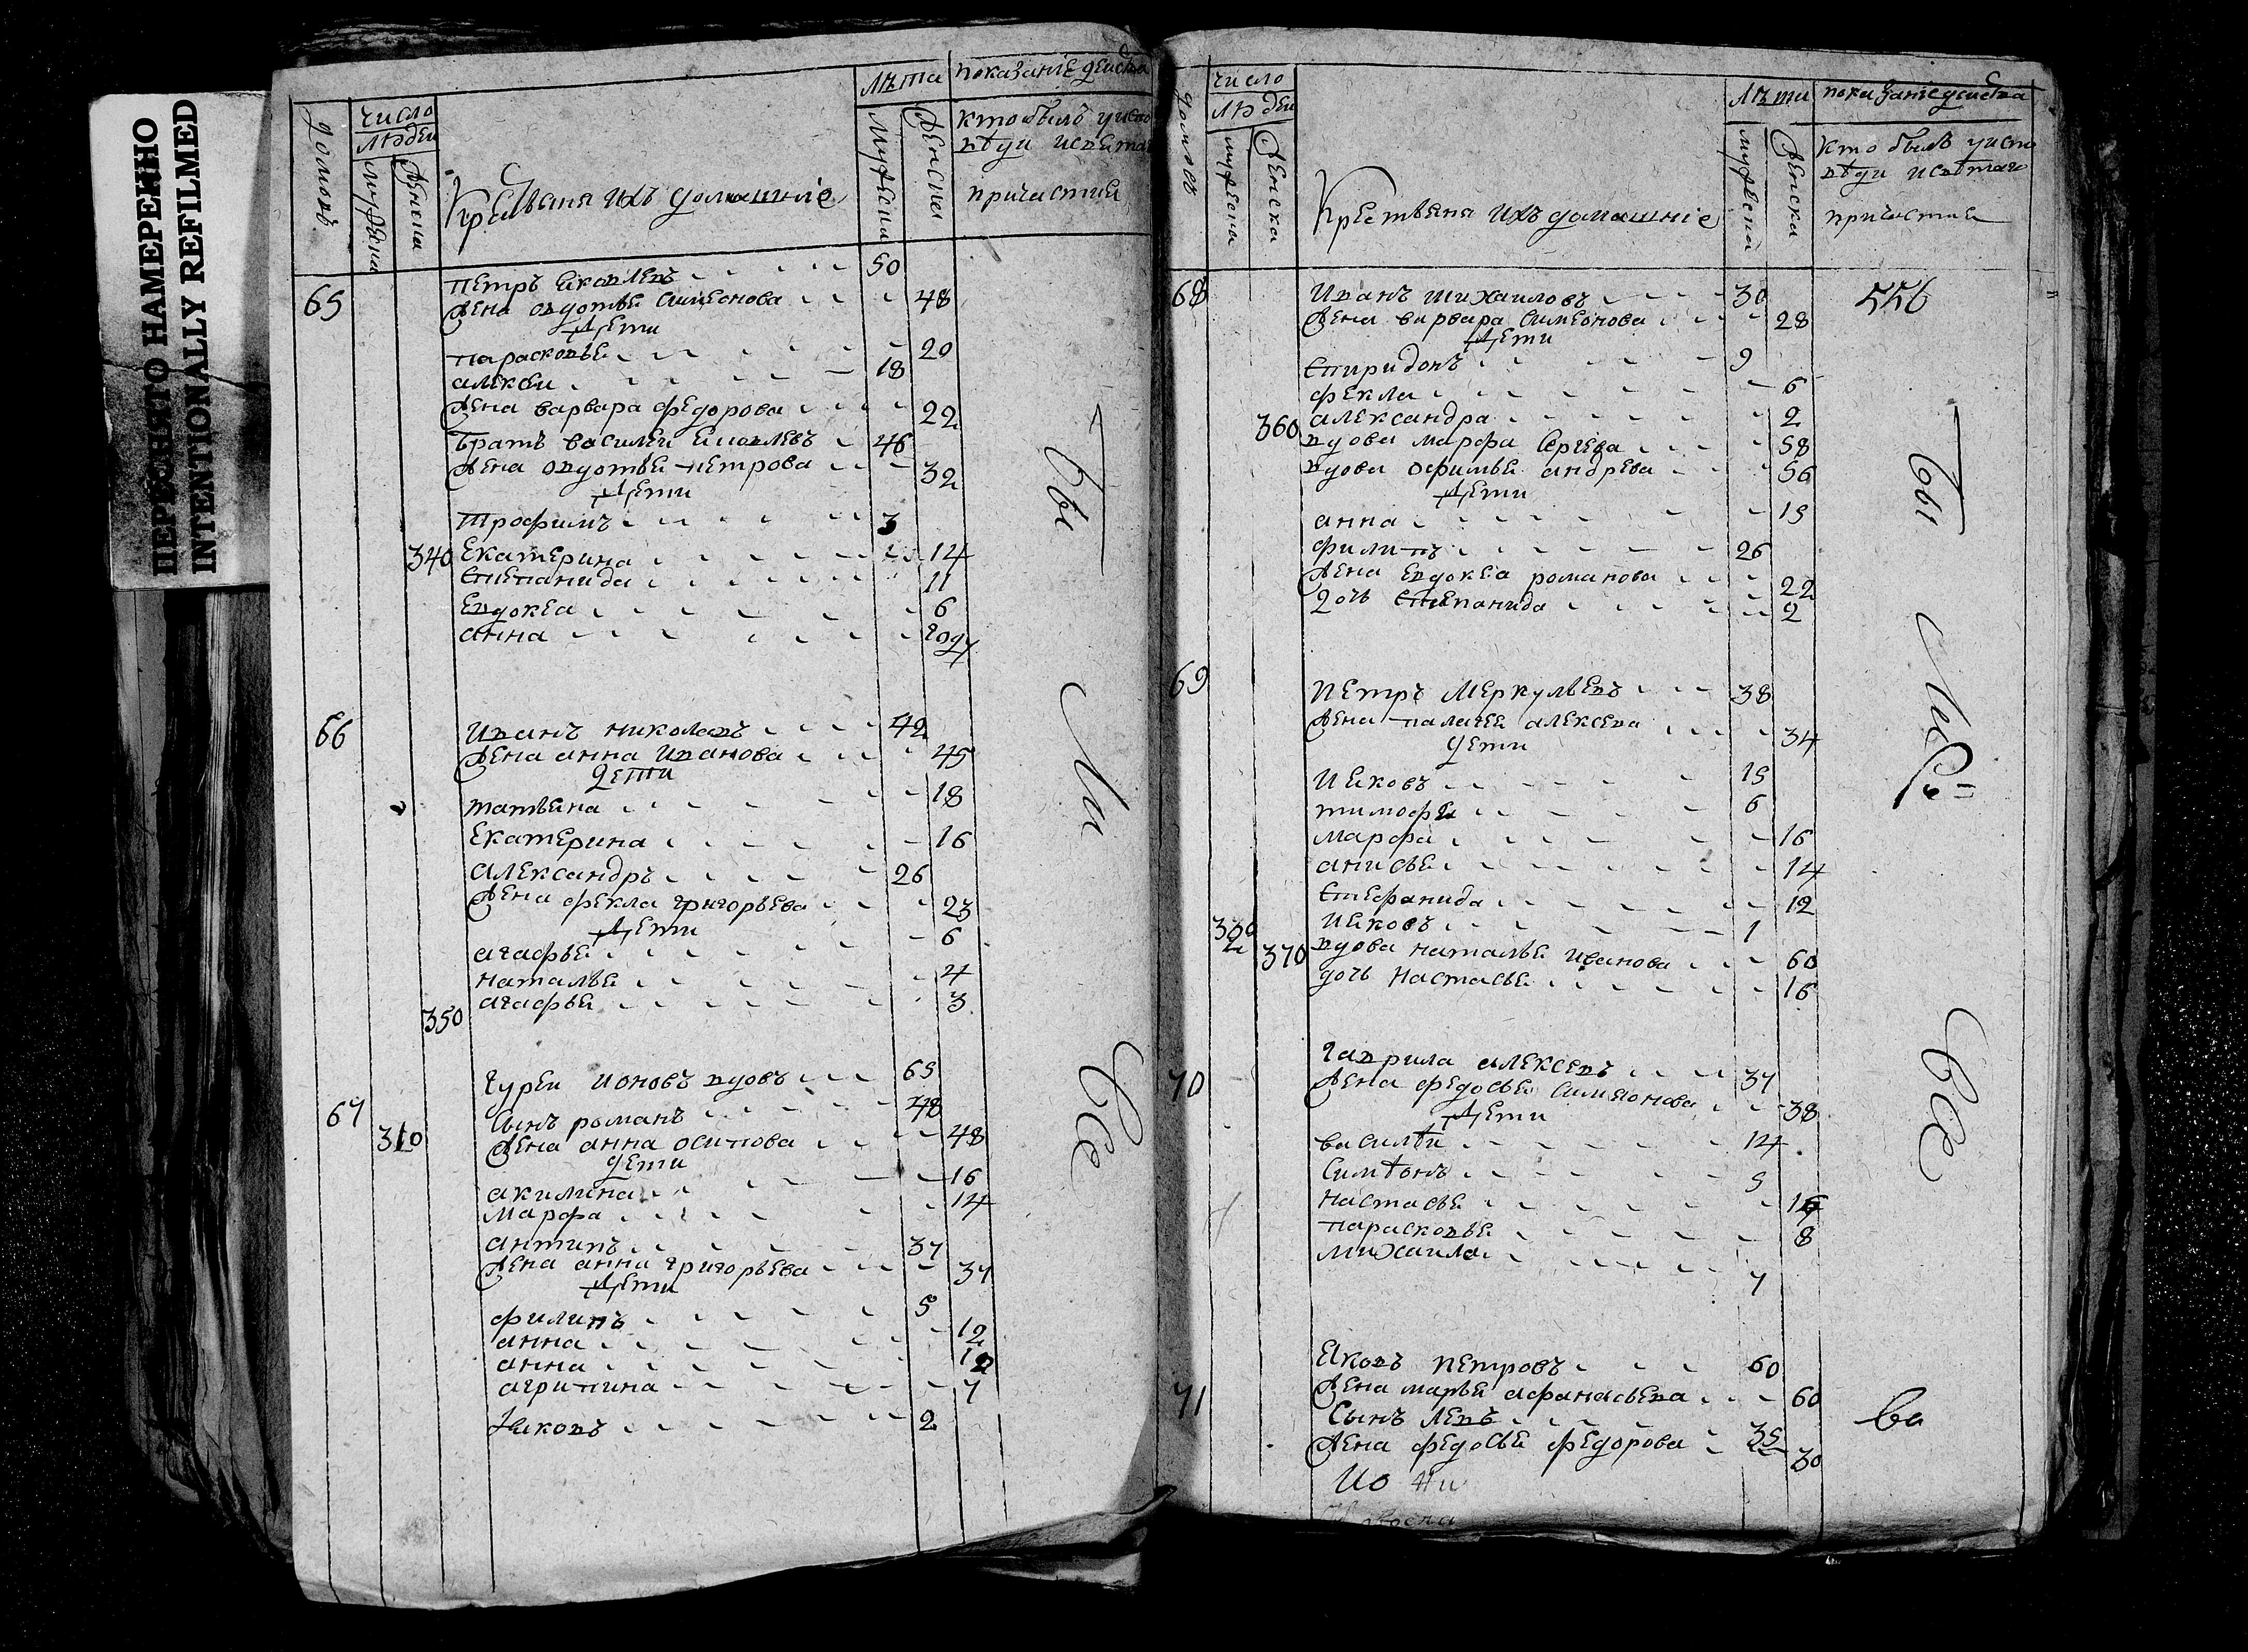 ПЕРЕСНЯТО НАМЕРЕННО
INTENTIONALLY REFILMED
домовъ
число
людеи
мужеска
женска
Крестьяня ихъ домашніе
лѣта
мужеска
женска
показаніе действа
кто былъ уиспо
вѣди исвята
причастия
65
петръ яковлевъ 50
жена овдотья симеонова 48
дети
парасковья 20
алексеи 18
жена варвара федорова 22
братъ василеи яковлевъ 46
жена овдотья петрова 32
дети
трофимъ 3
340 екатерина 14
степанида 11
евдокеа 6
анна
66
иванъ николаевъ 42
жена анна иванова 45
дети
татьяна 18
екатерина 16
александръ 26
жена фекла григорьева 23
дети
агафья 6
наталья 4
350 агафья 3
67
гуреи ионовъ вдовъ 65
сынъ романъ 48
310 жена анна осипова 48
дети
акилина 16
марфа 14
антипъ 37
жена анна григорьева 37
дети
филипъ 5
анна 12
анна
агрипина 7
яковъ 2
бы
ли
все
домовъ
число
людеи
мужеска
женска
Крестьяня ихъ домашніе
лѣта
мужеска
женска
показаніе действа
кто былъ уиспо
вѣди исвятаго
причастия
556
68
иванъ михаиловъ 30
жена варвара симеонова 28
дети
спиридонъ 9
фекла 6
360 александра 2
вдова марфа сергева 58
вдова офимья андрева 56
дети
анна 15
филипъ 26
жена евдокеа романова 22
дочь степанида 2
69
петръ меркульевъ 38
жена палагея алексева 34
дети
ияковъ 15
тимофеи 6
марфа 16
анисья 14
стефанида 12
ияковъ 1
370 вдова наталья иванова 60
дочь настасья 16
70
гаврила алексевъ 37
жена федосья симионова 38
дети
василѣи 14
симѣонъ 5
настасья
парасковья 8
михаила 7
71
яковъ петровъ 60
жена марья афанасьева 60
сынъ левъ 35
жена федосья федорова 30
бы
все